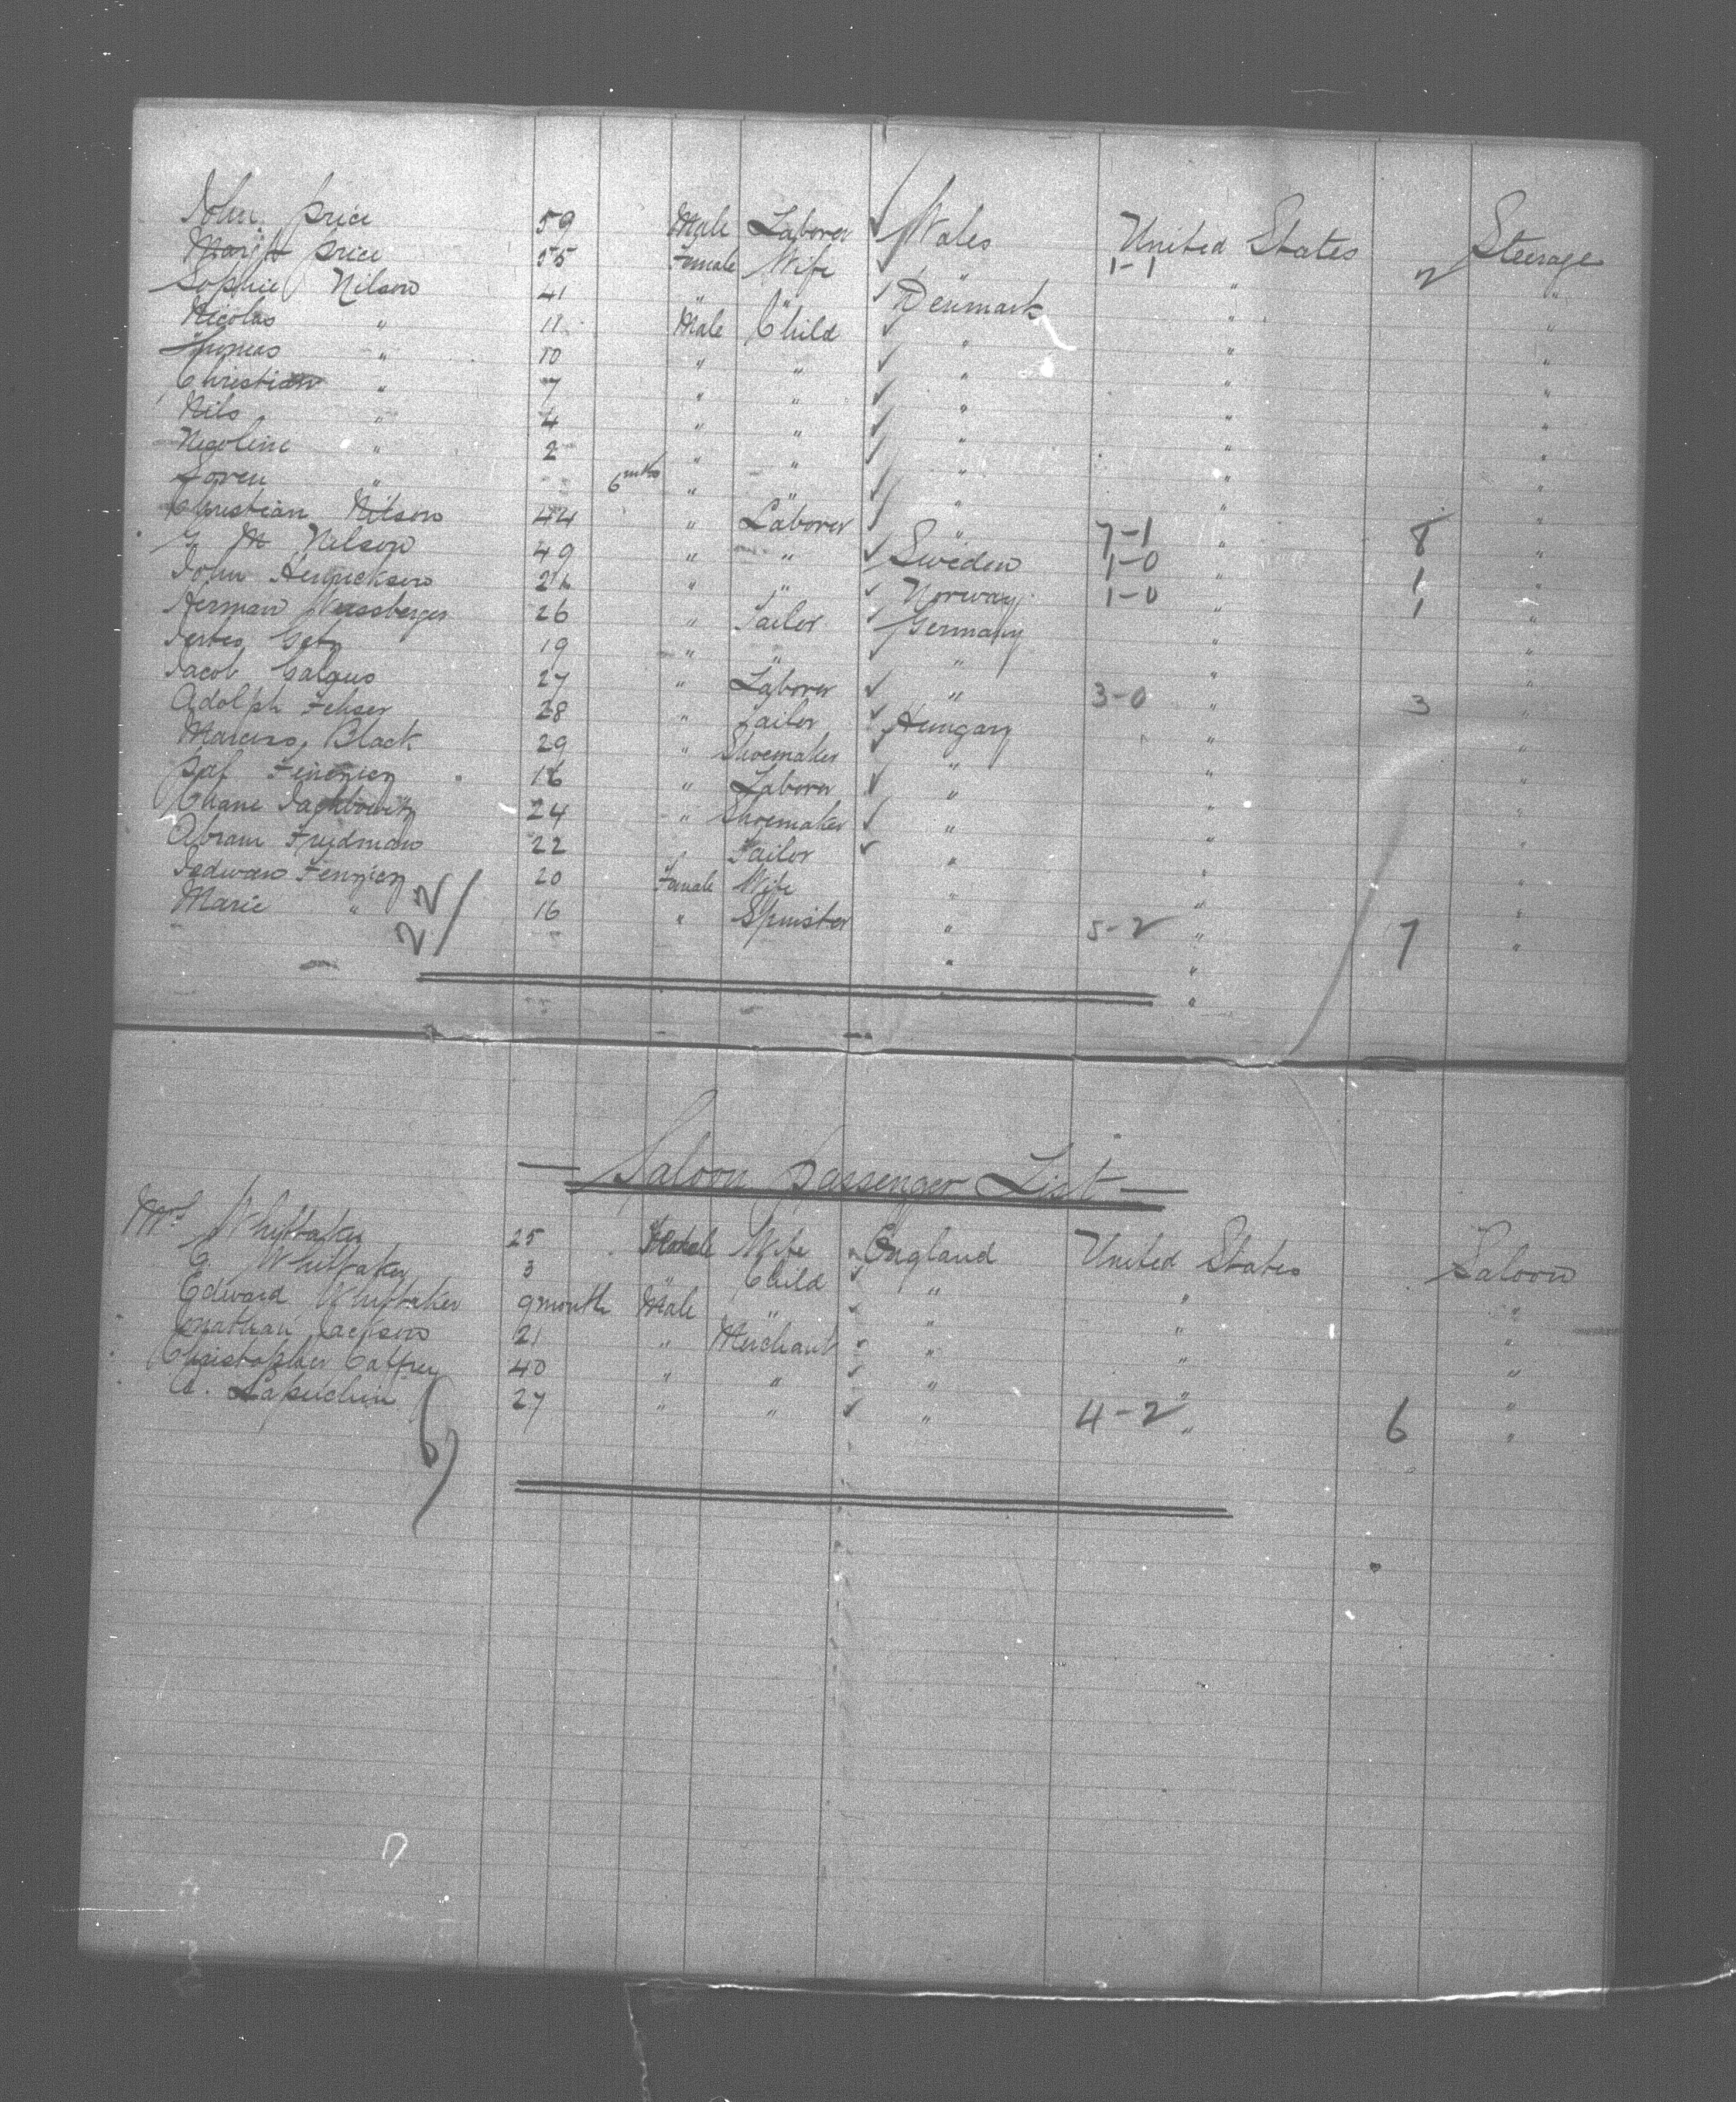 John Price 59 Male Laborer ✓ Wales United States Steerage
Price 55 Female Wife ✓ " 1-1 " 2 "
Sophie Nilson 41 " " ✓ Denmark " "
Nicolas " 11 Male Child ✓ " " "
" 10 " " ✓ " " "
Christian " 7 " " ✓ " " "
Nils " 4 " " ✓ " " "
Nicoline " 2 " " ✓ " " "
Soren " 6 mths " " ✓ " " "
Christian Nilson 44 " Laborer ✓ " 7-1 " 8 "
Nelson 49 " " ✓ Sweden 1-0 " 1 "
John Henrickson " " ✓ Norway 1-0 " 1 "
Herman Weissberger 26 " Tailor ✓ Germany " "
19 " " ✓ " " "
Jacob 27 " Laborer ✓ " 3-0 " 3 "
Adolph Fehser 28 " Tailor ✓ Hungary " "
Marcus Black 29 " Shoemaker ✓ " " "
16 " Laborer ✓ " " "
24 " Shoemaker ✓ " " "
Abram Frydman 22 " Tailor ✓ " " "
20 Female Wife " " "
Marie " 16 " Spinster " 5-2 " 7 "
22
— Saloon Passenger List —
Mrs Whittaker 25 Female Wife ✓ England United States Saloon
C. Whittaker 3 " Child ✓ " " "
Edward Whittaker 9 month Male " ✓ " " "
Jonathan Jackson 21 " Merchant ✓ " " "
Christopher Caffrey 40 " " ✓ " " "
27 " " ✓ " 4-2 " 6 "
6